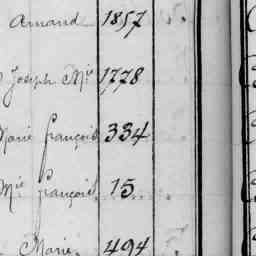 Amand 1857
Joseph Mie 1778
Marie françois 334
Mie françois 15
Marie 494